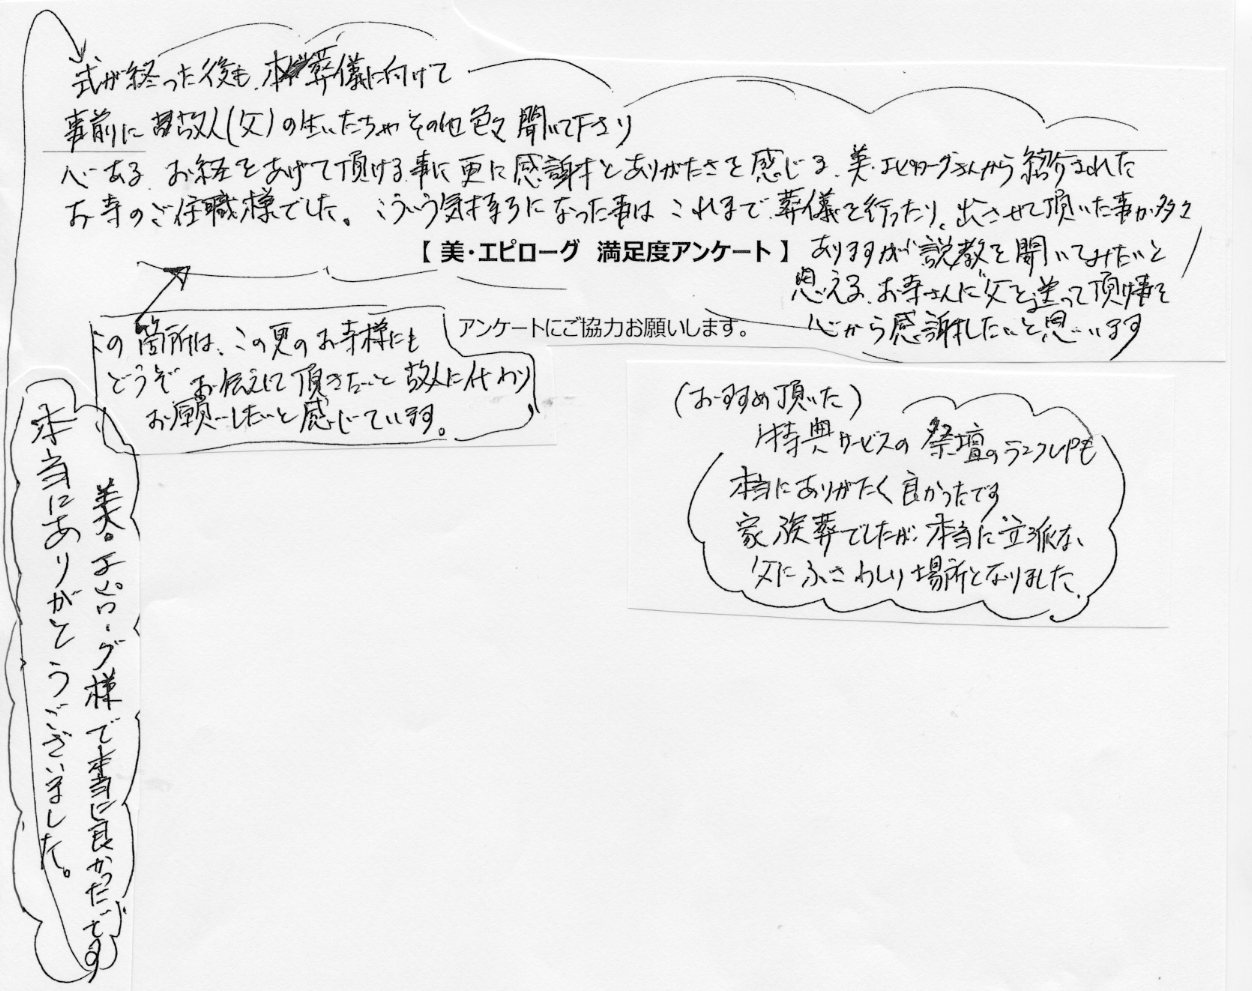 式が終った後も、葬儀に向けて
事前に故人(父)の生いたちやその他色々聞いて下さり
心ある、お経をあげて頂ける事に更に感謝とありがたさを感じる、美・エピローグさんから紹介された
お寺のご住職様でした。こういう気持ちになった事はこれまで葬儀を行ったり、出させて頂いた事が多々
ありますが説教を聞いてみたいと
思える、お寺さんに父を送って頂け事を
心から感謝したいと思います
【 美・エピローグ 満足度アンケート 】
アンケートにご協力お願いします。
この箇所は、この更のお寺様にも
どうぞ お伝えして頂きたいと 故人に代わり
お願いしたいと感じています。
(おすすめ頂いた)
特典サービスの祭壇のランクUPも
本当にありがたく良かったです
家族葬でしたが、本当に立派な、
父にふさわしい場所となりました。
美・エピローグ様で本当に良かったです
本当にありがとうございました。